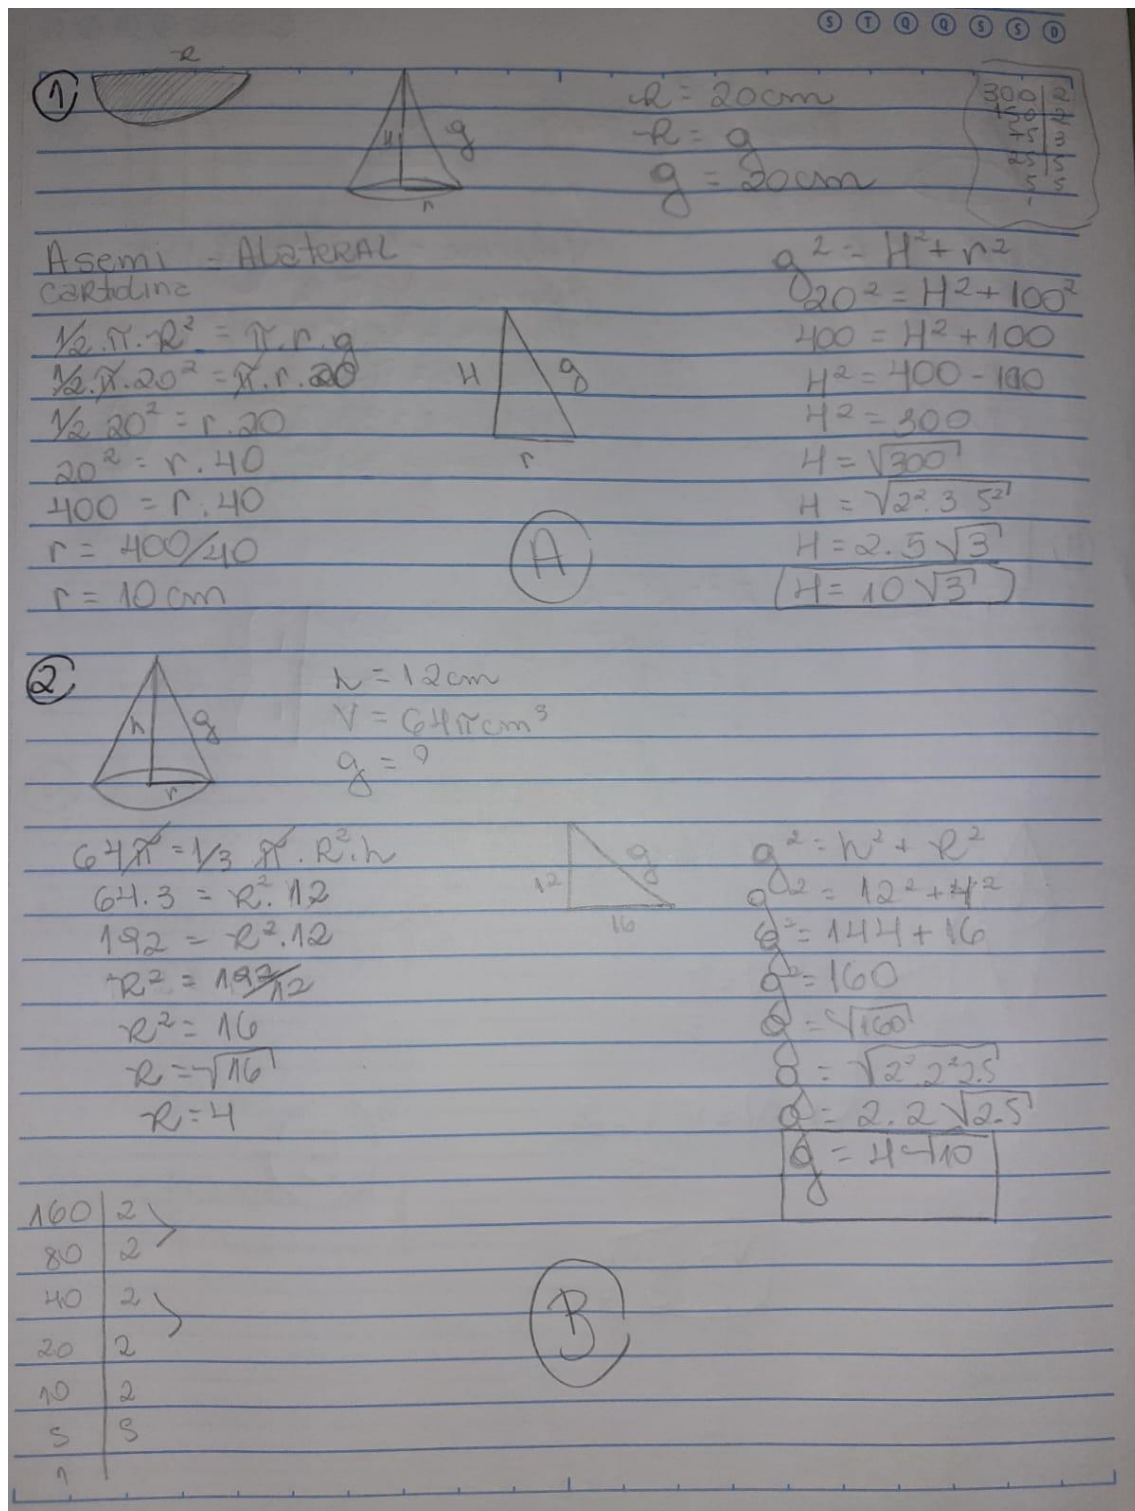 S T Q Q S S D
1
R
H
g
r
R = 20cm
R = g
g = 20cm
300 | 2
150 | 2
75 | 3
25 | 5
5 | 5
1
Asemi = ALateRAL
cartolina
1/2.π.R² = π.r.g
1/2.π.20² = π.r.20
1/2 20² = r.20
20² = r.40
400 = r.40
r = 400/40
r = 10cm
H
g
r
A
g² = H² + r²
20² = H² + 100²
400 = H² + 100
H² = 400 - 100
H² = 300
H = √300
H = √2².3 5²
H = 2.5√3
H = 10√3
2
h
g
r
h = 12cm
V = 64πcm³
g = ?
64π = 1/3 π.R².h
64.3 = R².12
192 = R².12
R² = 192/12
R² = 16
R = √16
R = 4
12
g
16
g² = h² + R²
g² = 12² + 4²
g² = 144 + 16
g² = 160
g = √160
g = √2².2²2.5
g = 2.2√2.5
g = 4√10
160 | 2
80 | 2
40 | 2
20 | 2
10 | 2
5 | 5
1
B